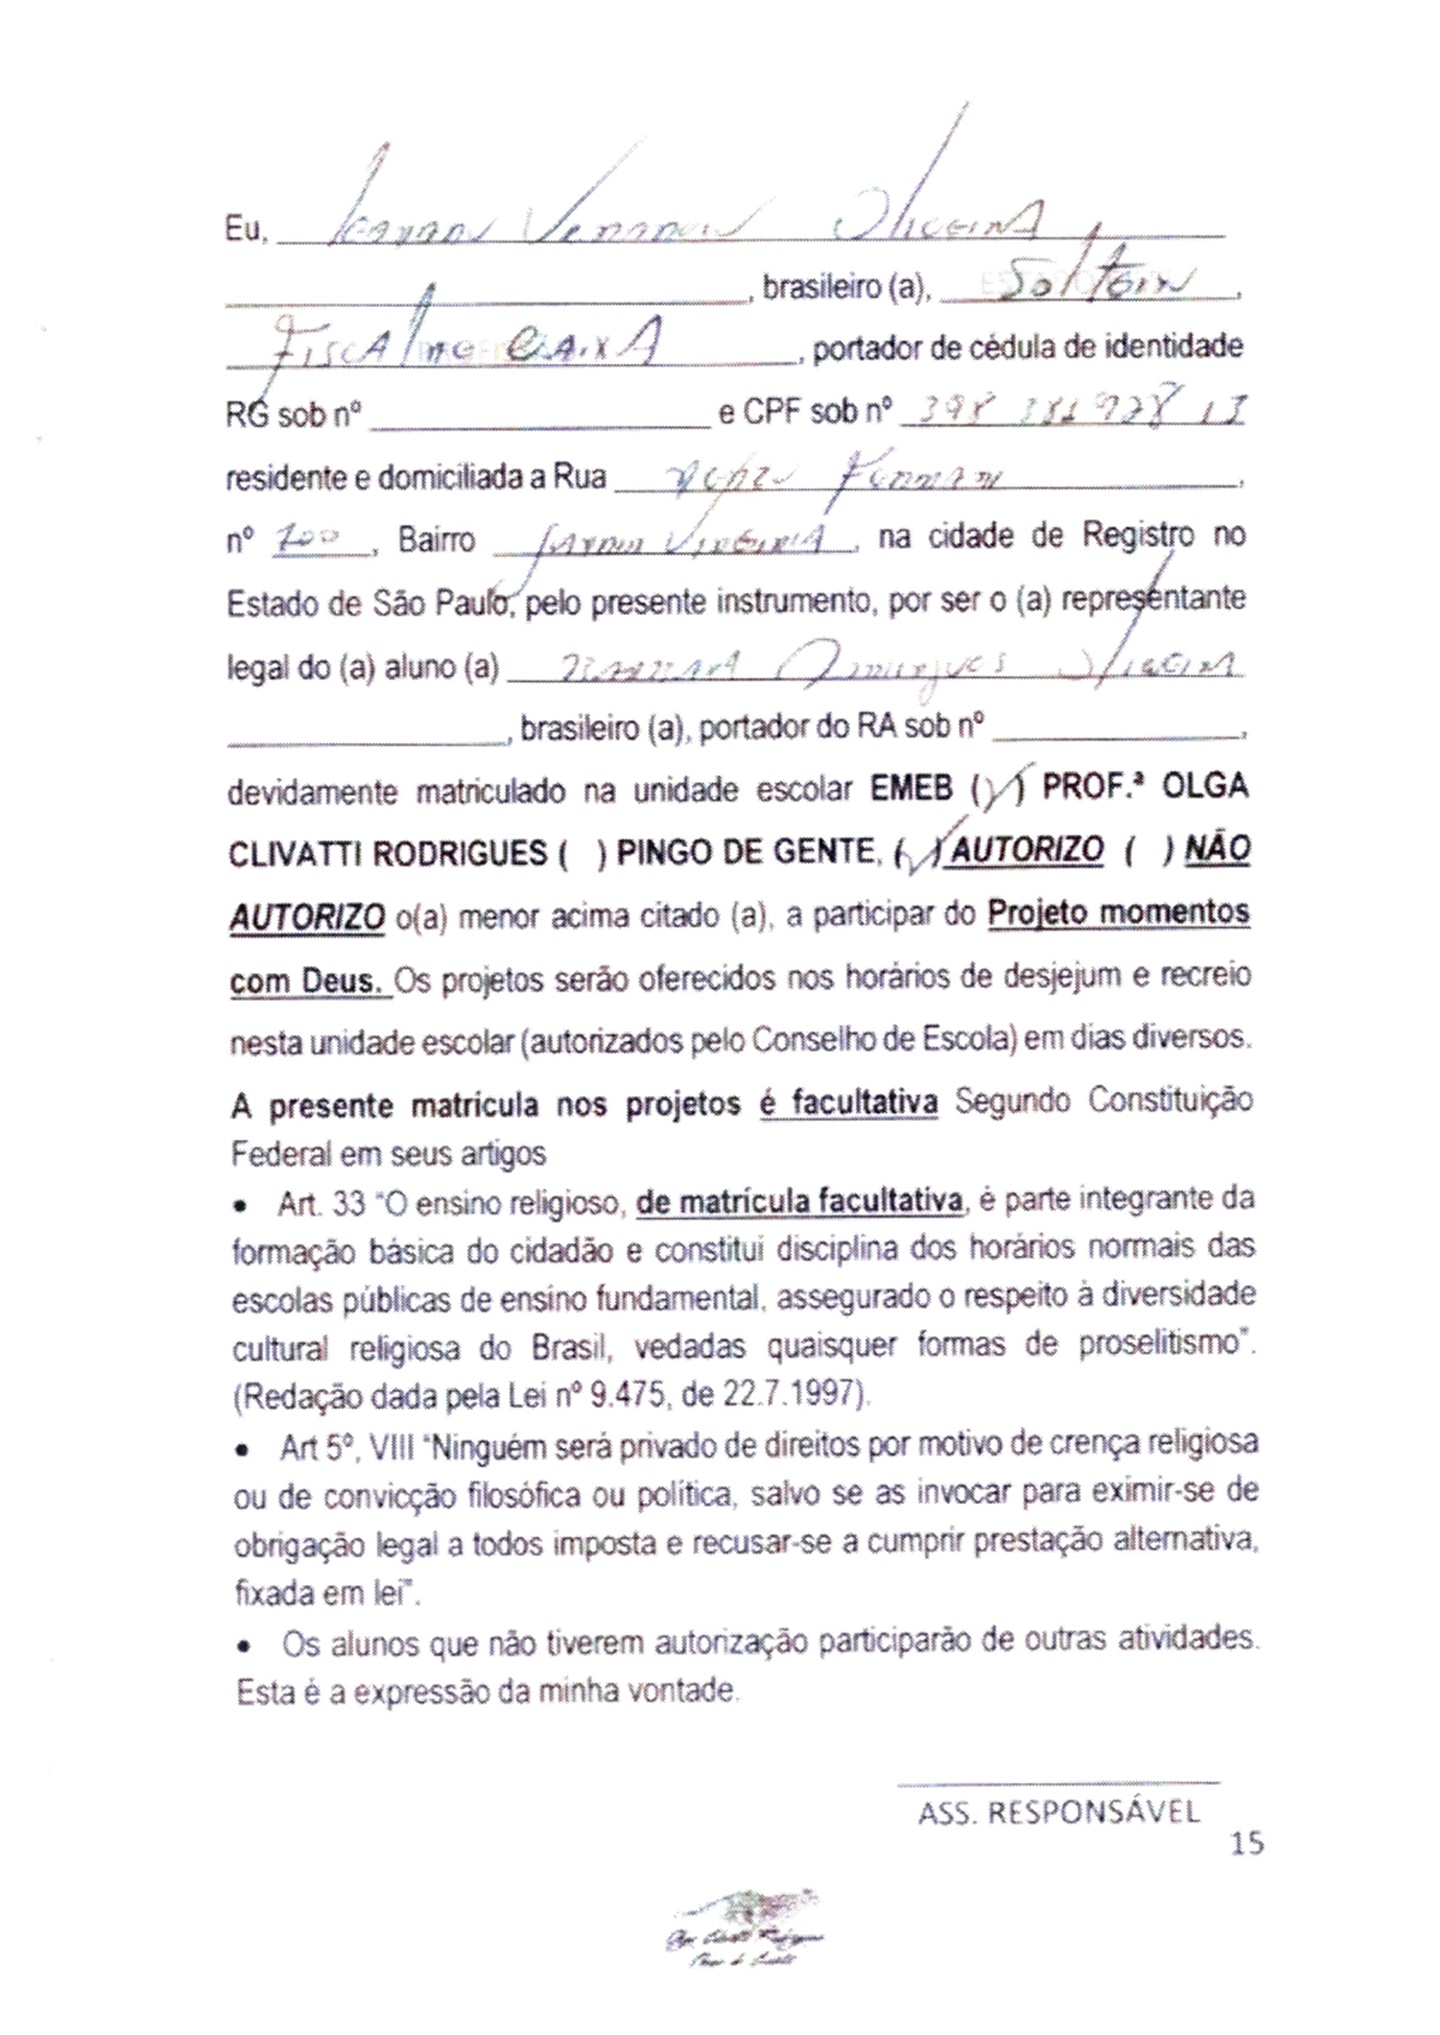 Eu, Oliveira
, brasileiro (a), Solteiro,
Fiscal de Caixa, portador de cédula de identidade
RG sob nº e CPF sob nº
residente e domiciliada a Rua ,
nº 700, Bairro Jardim Virginia, na cidade de Registro no
Estado de São Paulo, pelo presente instrumento, por ser o (a) representante
legal do (a) aluno (a) Domingues Oliveira
, brasileiro (a), portador do RA sob nº ,
devidamente matriculado na unidade escolar EMEB (✓) PROF.ª OLGA
CLIVATTI RODRIGUES ( ) PINGO DE GENTE, (✓) AUTORIZO ( ) NÃO
AUTORIZO o(a) menor acima citado (a), a participar do Projeto momentos
com Deus. Os projetos serão oferecidos nos horários de desjejum e recreio
nesta unidade escolar (autorizados pelo Conselho de Escola) em dias diversos.
A presente matrícula nos projetos é facultativa Segundo Constituição
Federal em seus artigos
• Art. 33 "O ensino religioso, de matrícula facultativa, é parte integrante da
formação básica do cidadão e constitui disciplina dos horários normais das
escolas públicas de ensino fundamental, assegurado o respeito à diversidade
cultural religiosa do Brasil, vedadas quaisquer formas de proselitismo".
(Redação dada pela Lei nº 9.475, de 22.7.1997).
• Art 5º, VIII "Ninguém será privado de direitos por motivo de crença religiosa
ou de convicção filosófica ou política, salvo se as invocar para eximir-se de
obrigação legal a todos imposta e recusar-se a cumprir prestação alternativa,
fixada em lei".
• Os alunos que não tiverem autorização participarão de outras atividades.
Esta é a expressão da minha vontade.
ASS. RESPONSÁVEL
15